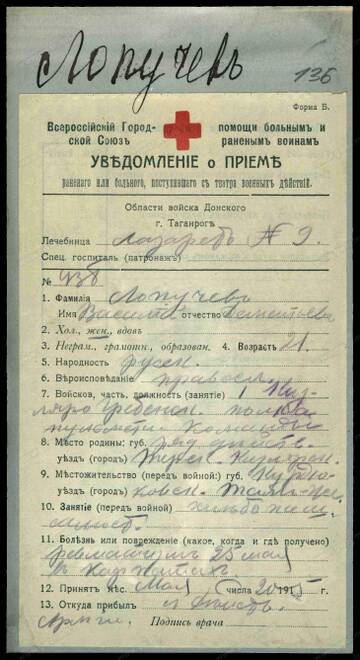 Лопучевъ
136
Форма Б.
Всероссійскій Город- помощи больнымъ и
ской Союзъ раненымъ воинамъ
УВѢДОМЛЕНІЕ о ПРІЕМѢ
раненаго или больного, поступившаго съ театра военныхъ дѣйствій.
Области войска Донского
г. Таганрогъ
Лечебница Лазаретъ № 9.
Спец. госпиталь (патронажъ)
№ 936
1. Фамилія Лопучевъ
Имя Василій отчество
2. Хол., жен., вдовъ
3. Неграм., грамотн., образован. 4. Возрастъ 21.
5. Народность русск.
6. Вѣроисповѣданіе православ.
7. Войсков. часть, должность (занятіе) 1 Киз-
ляро Гребенск. полка
пулеметн. команды
8. Мѣсто родины: губ. ряд
уѣздъ (городъ) Терск.
9. Мѣстожительство (передъ войной): губ.
уѣздъ (городъ)
10. Занятіе (передъ войной) хлѣбопаш
11. Болѣзнь или поврежденіе (какое, когда и гдѣ получено)
ревматизмъ 25 мая
въ Карпатахъ
12. Принятъ мѣс. Мая числа 20 1915 г.
13. Откуда прибылъ
Подпись врача